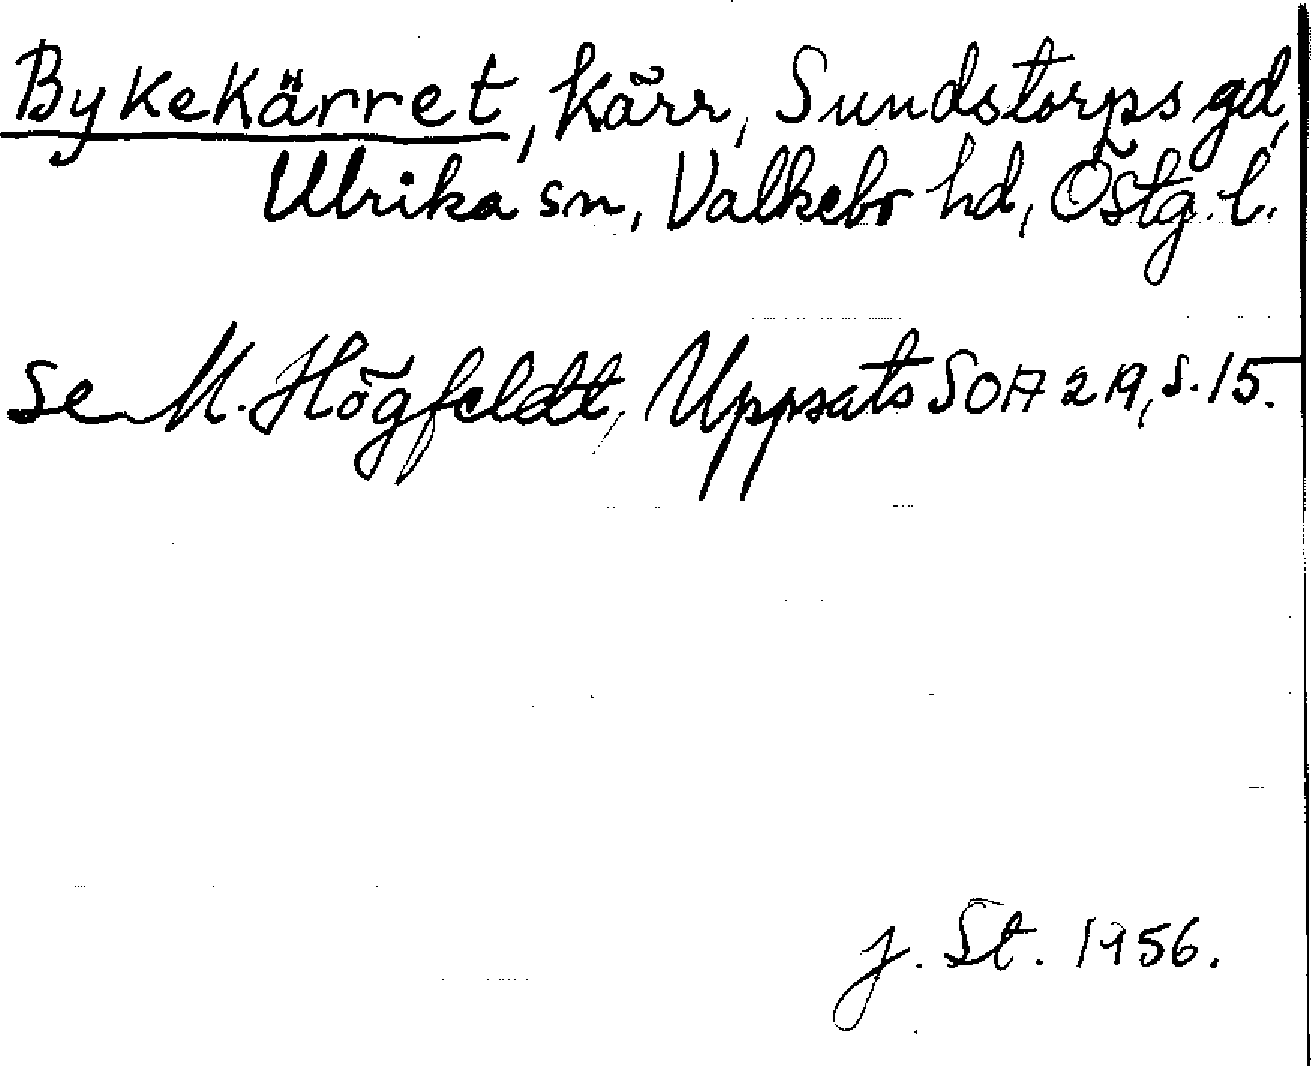 Bykekärret, kärr, Sundstorps gd,
Ulrika sn, Valkebo hd, Östg. l.
se M. Högfeldt, Uppsats SOA 219, s. 15.
J. St. 1956.